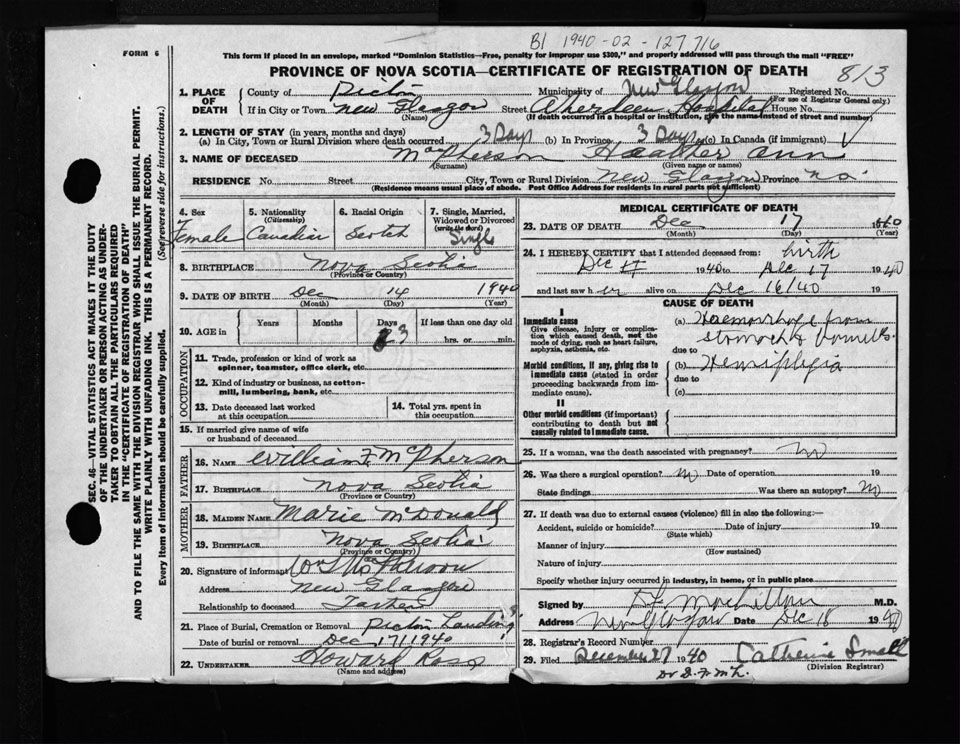 B1 1940-02-127716
FORM 6
This form if placed in an envelope, marked "Dominion Statistics—Free, penalty for improper use $300," and property addressed will pass through the mail "FREE"
PROVINCE OF NOVA SCOTIA—CERTIFICATE OF REGISTRATION OF DEATH
813
SEC. 46—VITAL STATISTICS ACT MAKES IT THE DUTY
OF THE UNDERTAKER OR PERSON ACTING AS UNDER-
TAKER TO OBTAIN ALL THE PARTICULARS REQUIRED
IN THE "CERTIFICATE OF REGISTRATION OF DEATH"
AND TO FILE THE SAME WITH THE DIVISION REGISTRAR WHO SHALL ISSUE THE BURIAL PERMIT.
WRITE PLAINLY WITH UNFADING INK. THIS IS A PERMANENT RECORD.
Every item of information should be carefully supplied. (See reverse side for instructions.)
1. PLACE OF DEATH
County of Pictou Municipality of New Glasgow Registered No.
(For use of Registrar General only.)
If in City or Town New Glasgow Street Aberdeen Hospital House No.
(Name) (If death occurred in a hospital or institution, give the name instead of street and number)
2. LENGTH OF STAY (in years, months and days)
(a) In City, Town or Rural Division where death occurred 3 Days (b) In Province 3 Days (c) In Canada (if immigrant)
3. NAME OF DECEASED MacPherson Heather Ann
(Surname) (Given name or names)
RESIDENCE No. Street City, Town or Rural Division New Glasgow Province N.S.
(Residence means usual place of abode. Post Office Address for residents in rural parts not sufficient)
4. Sex Female
5. Nationality (Citizenship) Canadian
6. Racial Origin Scotch
7. Single, Married, Widowed or Divorced (write the word) Single
8. BIRTHPLACE Nova Scotia
(Province or Country)
9. DATE OF BIRTH Dec 14 1940
(Month) (Day) (Year)
10. AGE in Years Months Days 3 If less than one day old
hrs. or min.
OCCUPATION
11. Trade, profession or kind of work as spinner, teamster, office clerk, etc.
12. Kind of industry or business, as cotton-mill, lumbering, bank, etc.
13. Date deceased last worked at this occupation
14. Total yrs. spent in this occupation
15. If married give name of wife or husband of deceased
FATHER
16. NAME William F. McPherson
17. BIRTHPLACE Nova Scotia
(Province or Country)
MOTHER
18. MAIDEN NAME Marie McDonald
19. BIRTHPLACE Nova Scotia
(Province or Country)
20. Signature of informant Wm F MacPherson
Address New Glasgow
Relationship to deceased Father
21. Place of Burial, Cremation or Removal Pictou Landing
Date of burial or removal Dec 17 1940
22. UNDERTAKER Howard Ross
(Name and address)
MEDICAL CERTIFICATE OF DEATH
23. DATE OF DEATH Dec 17 1940
(Month) (Day) (Year)
24. I HEREBY CERTIFY that I attended deceased from: birth
Dec 1940 to Dec 17 1940
and last saw her alive on Dec 16/40
CAUSE OF DEATH
I
Immediate cause
Give disease, injury or complication which caused death, not the mode of dying, such as heart failure, asphyxia, asthenia, etc.
(a) Haemorrhage from
stomach & bowels
due to
Morbid conditions, if any, giving rise to immediate cause (stated in order proceeding backwards from immediate cause).
(b) Hemiplegia
due to
(c)
II
Other morbid conditions (if important) contributing to death but not causally related to immediate cause.
25. If a woman, was the death associated with pregnancy? No
26. Was there a surgical operation? No Date of operation 19
State findings Was there an autopsy? No
27. If death was due to external causes (violence) fill in also the following:—
Accident, suicide or homicide? Date of injury 19
(State which)
Manner of injury
(How sustained)
Nature of injury
Specify whether injury occurred in industry, in home, or in public place
Signed by D F MacLellan M.D.
Address New Glasgow Date Dec 18 1940
28. Registrar's Record Number
29. Filed December 27 1940 Catherine Small
(Division Registrar)
Dr D. F. McL.